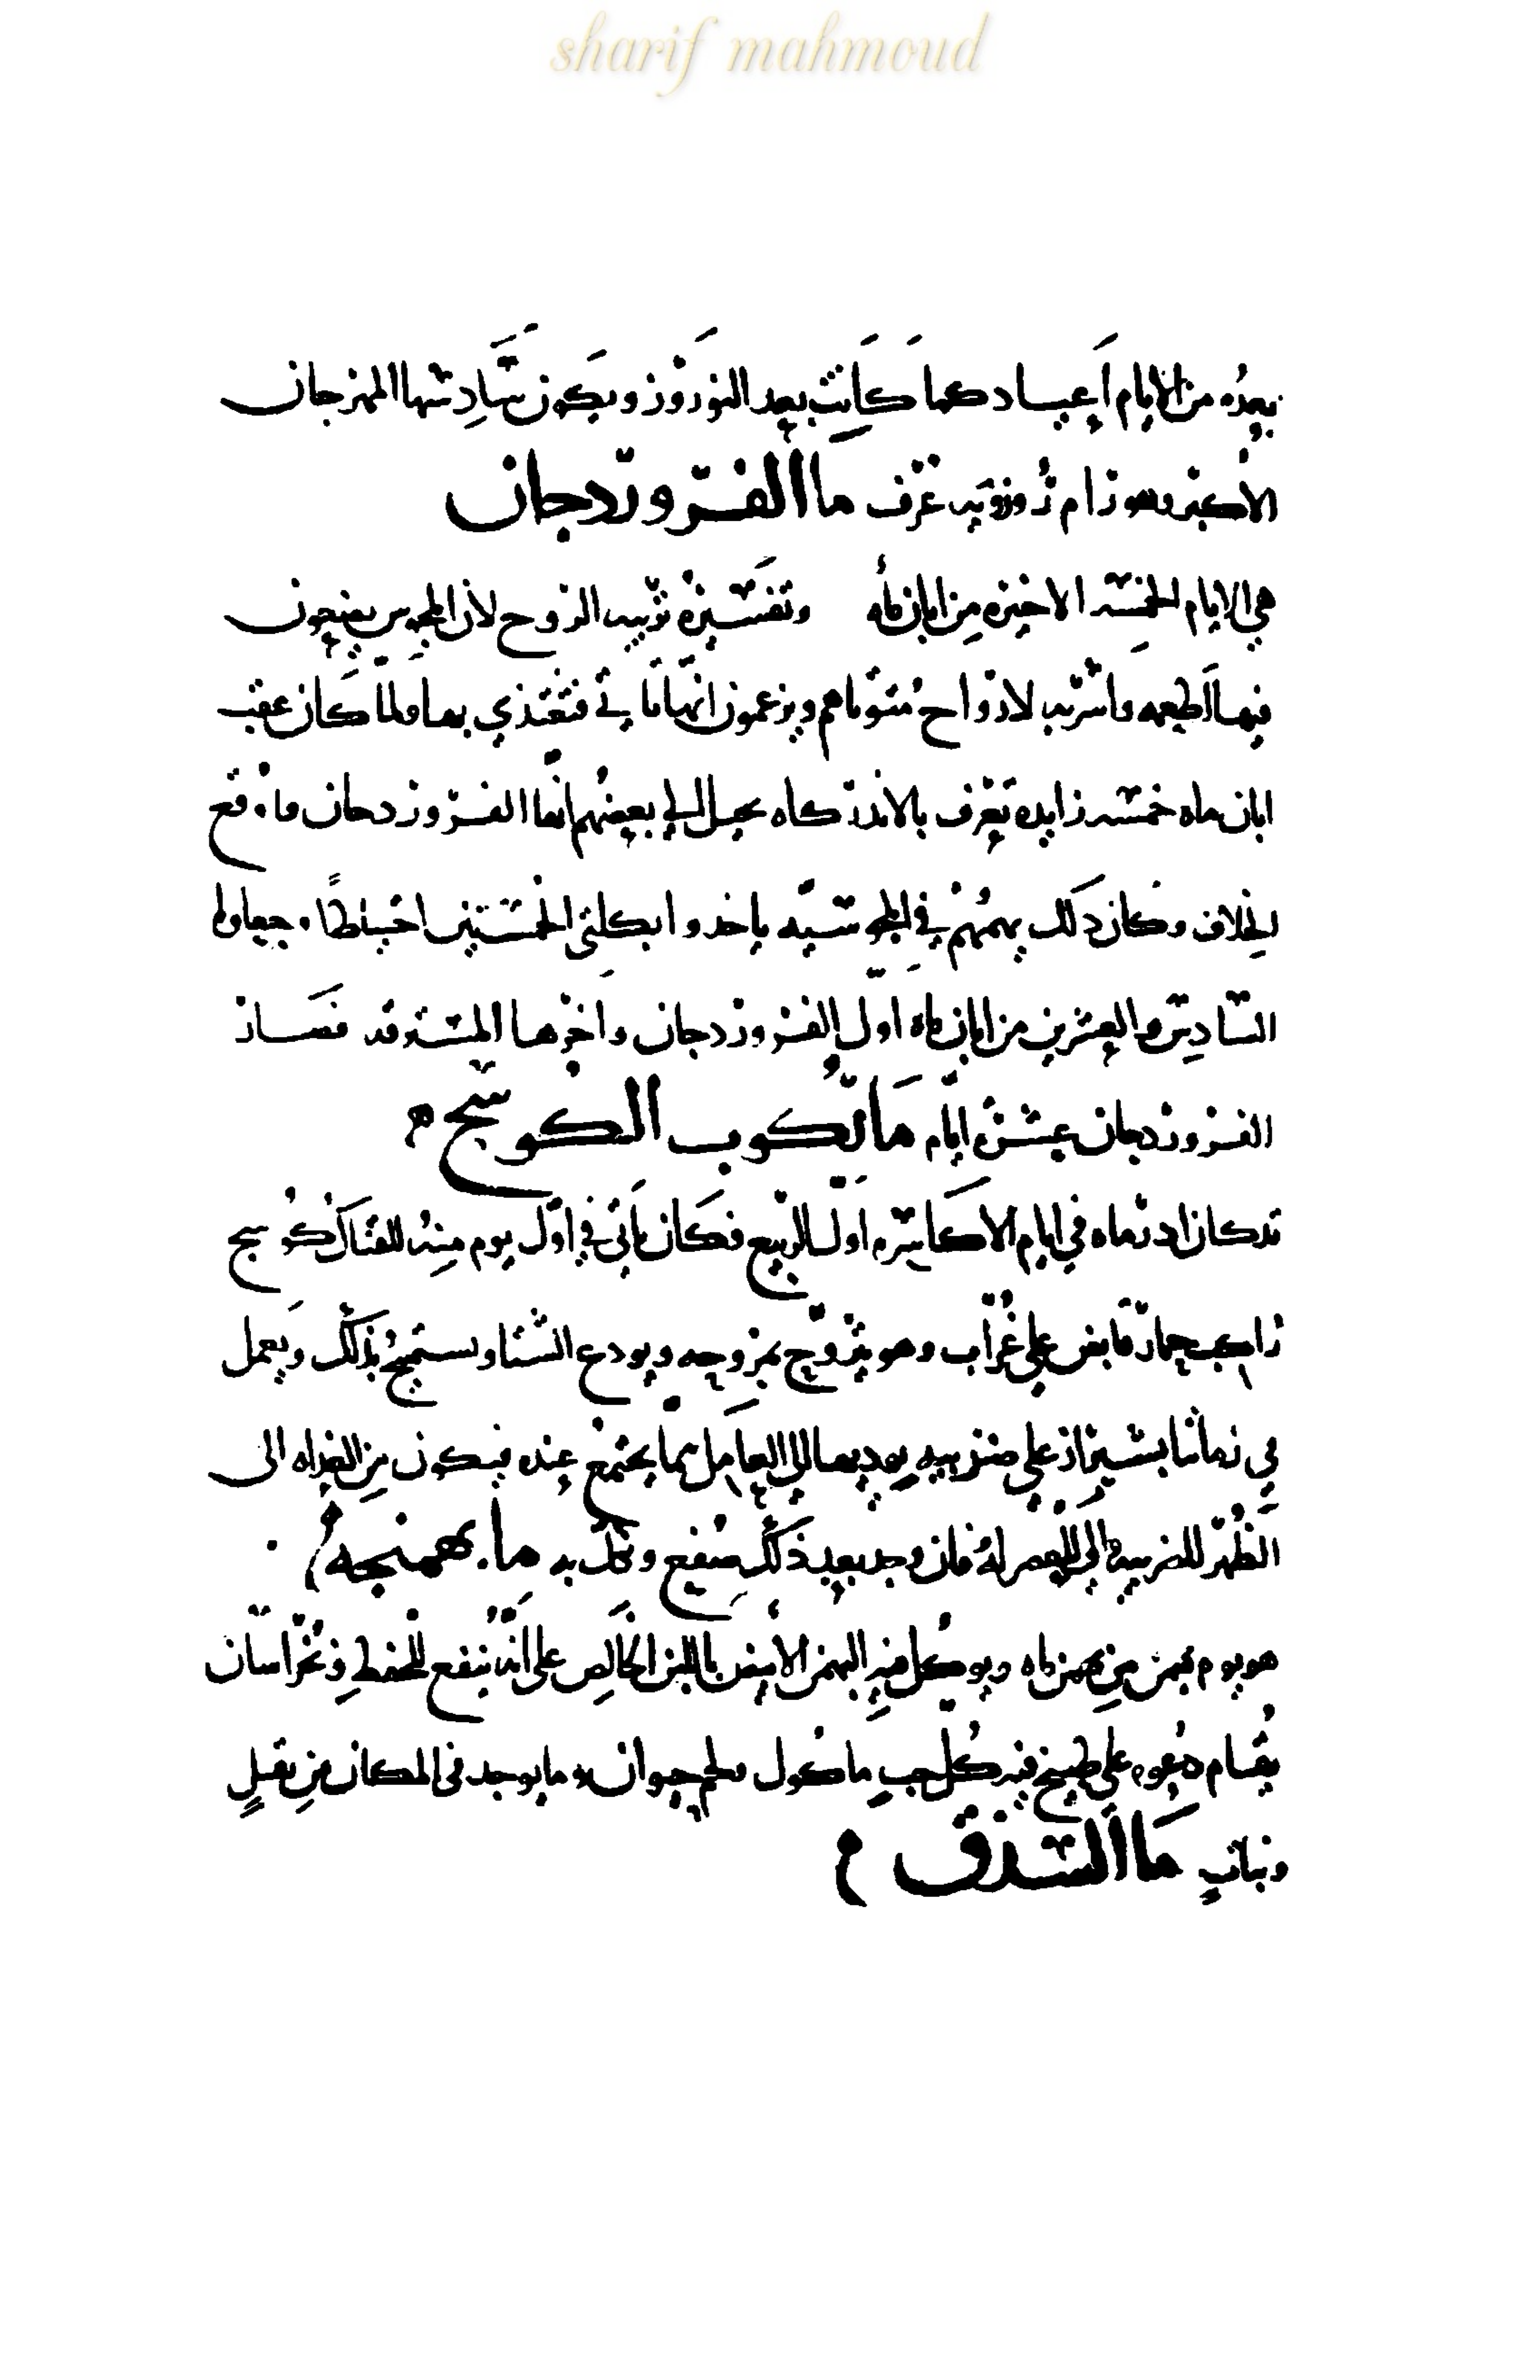 sharif mahmoud
بعده من الايام اعياد كما كانت بعد النوروز ويكون سادسها المهرجان
الاكبر وهو رام روز وبه عرف ما الفروردجان
هي الايام الخمسه الاخيره من ابان ماه وتفسيره تربيه الروح لان المجوس يضعون
فيها اطعمه واشربه لارواح موتاهم ويزعمون انها تاتي فتغتذي بها ولما كان عقيب
ابان ماه خمسه زايده تعرف بالاندركاه تخيل الي بعضهم انها الفروردجان ووقع
الخلاف وكان ذلك يهمهم في المجوسيه ياخذوا بكلتي الخمستين احتياطا وجعلوا
السادس والعشرين من ابان ماه اول الفروردجان واخرها المسترقه فصار
الفروردجان عشره ايام ما ركوب الكوسج
قد كان اذرماه في ايام الاكاسره اول الربيع فكان ياتي في اول يوم منه للفال كوسج
راكب حمار قابض علي غراب وهو يتروح بمروحه ويودع الشتا ويستميح بذلك ويعمل
في زماننا بشيراز علي ضريبيه يوديها الي العامل مما يجتمع عنده فيكون من الغداه الى
الظهر للضريبيه والي العصر له فان وجد بعد ذلك صفع ونكل به ما بهمنجه
هو يوم بهمن من بهمن ماه ويوكل فيه البهمن الابيض باللبن الخالص علي انه ينفع للحفظ وبخراسان
يقام دعوه علي طبيخ فيه كل حب ماكول ولحم حيوان وما يوجد في المكان من بقل
ونبات ما السذق